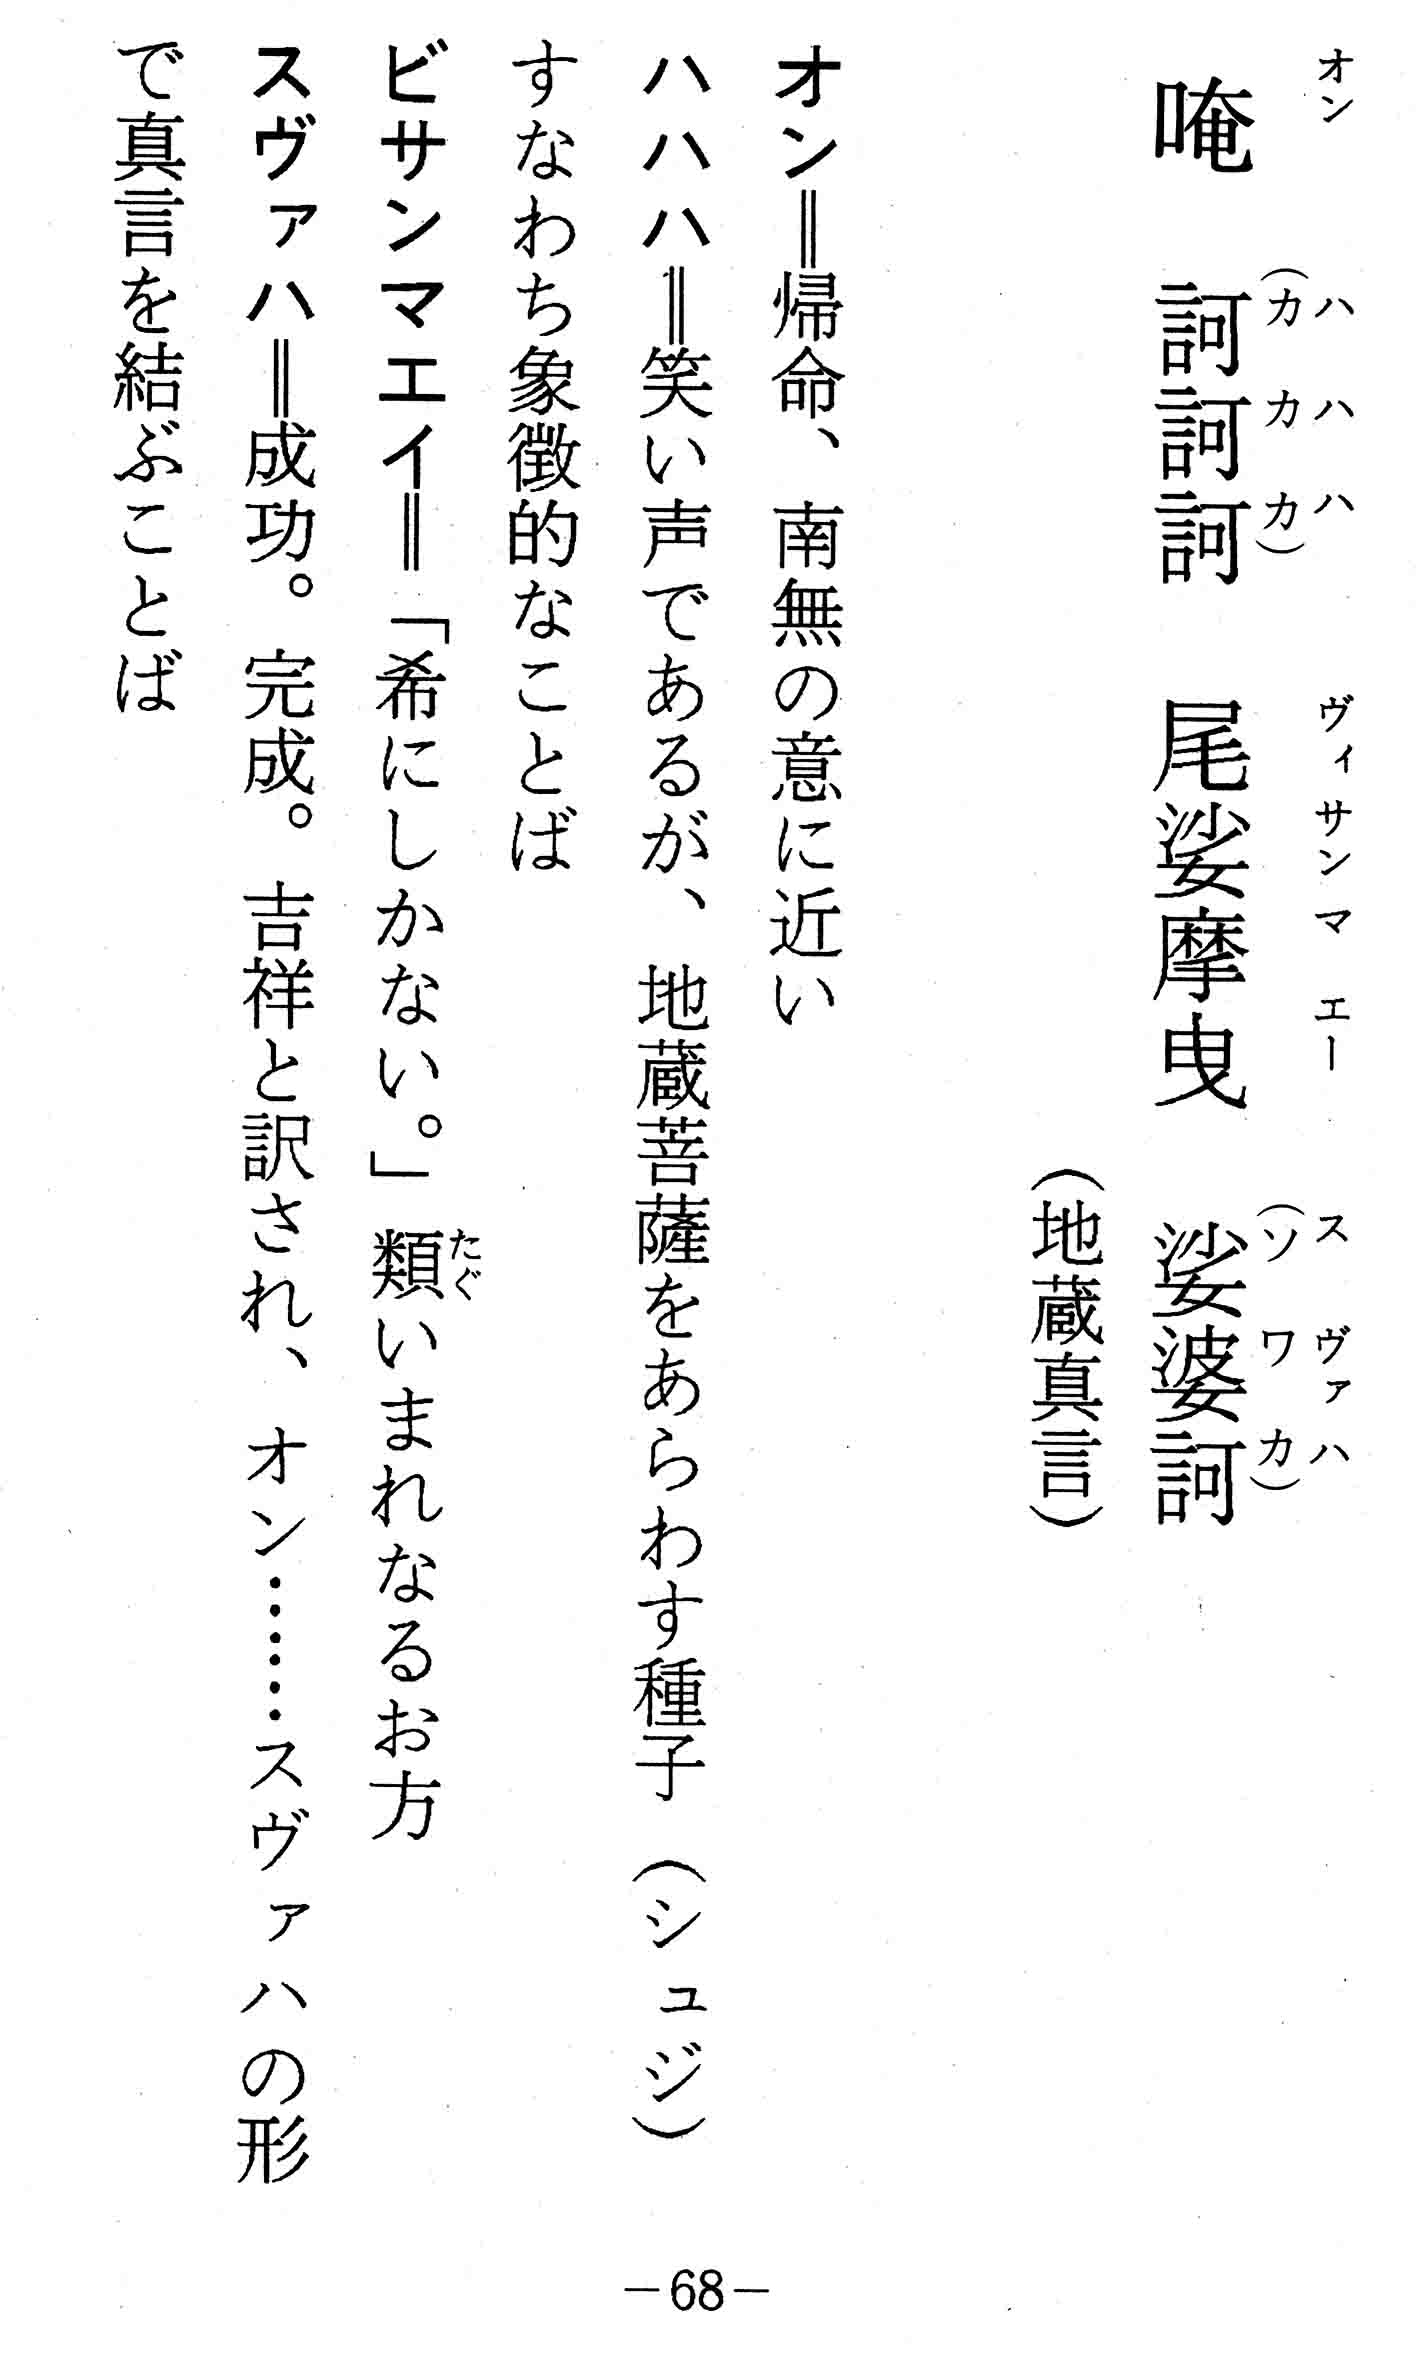 オン ハハハ ヴィサンマエー スヴァハ
(カカカ) (ソワカ)
唵 訶訶訶 尾娑摩曳 娑婆訶
(地蔵真言)
オン＝帰命、南無の意に近い
ハハハ＝笑い声であるが、地蔵菩薩をあらわす種子(シュジ)
すなわち象徴的なことば
たぐ
ビサンマエイ＝「希にしかない。」類いまれなるお方
スヴァハ＝成功。完成。吉祥と訳され、オン……スヴァハの形
で真言を結ぶことば
—68—